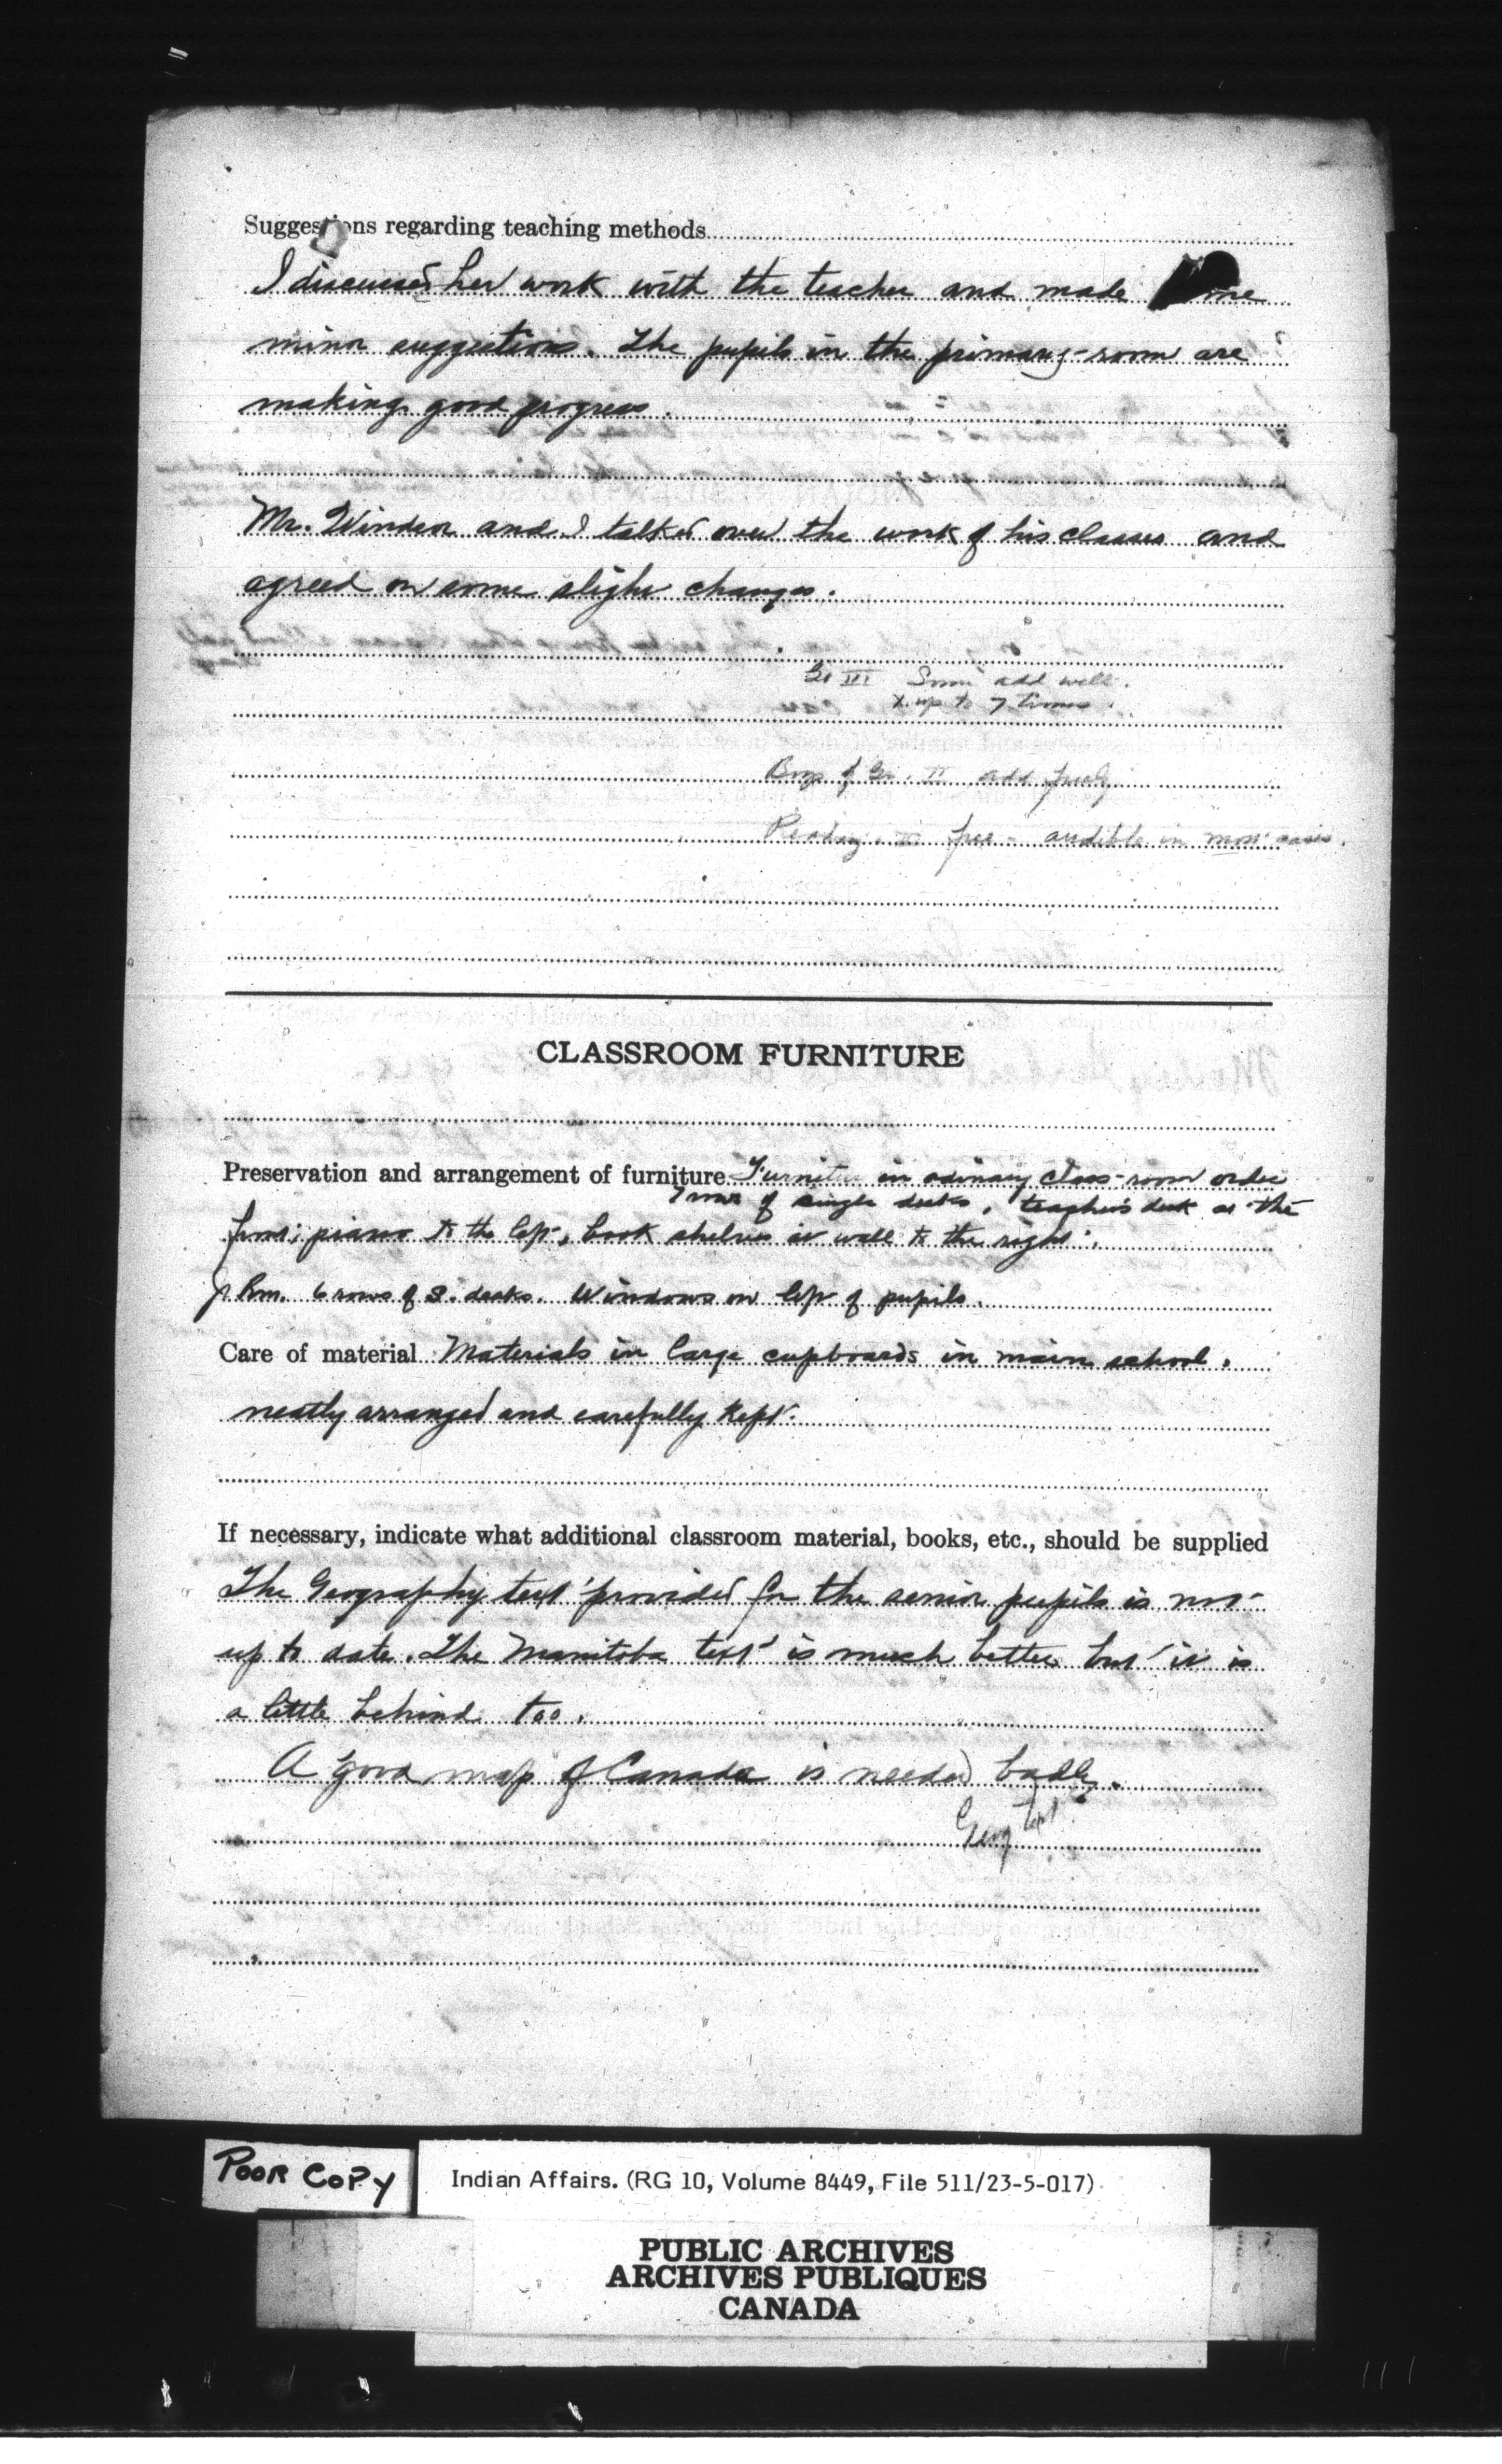 Suggestions regarding teaching methods
I discussed her work with the teacher and made some
minor suggestions. The pupils in the primary-room are
making good progress.
Mr. Windsor and I talked over the work of his classes and
agreed on some slight changes.
Gr III Some add well.
X up to 7 times.
Boys of Gr. II add freely
Reading. III free - audible in most cases.
CLASSROOM FURNITURE
Preservation and arrangement of furniture Furniture in ordinary class-room order
7 rows of single desks, teacher's desk at the
front; piano to the left, book shelves at wall to the right.
Jr Rm. 6 rows of S. desks. Windows on left of pupils.
Care of material Materials in large cupboards in main school.
neatly arranged and carefully kept.
If necessary, indicate what additional classroom material, books, etc., should be supplied
The Geography text provided for the senior pupils is not
up to date. The Manitoba text is much better but it is
a little behind too.
A good map of Canada is needed badly.
Geog text
POOR COPY
Indian Affairs. (RG 10, Volume 8449, File 511/23-5-017)
PUBLIC ARCHIVES
ARCHIVES PUBLIQUES
CANADA